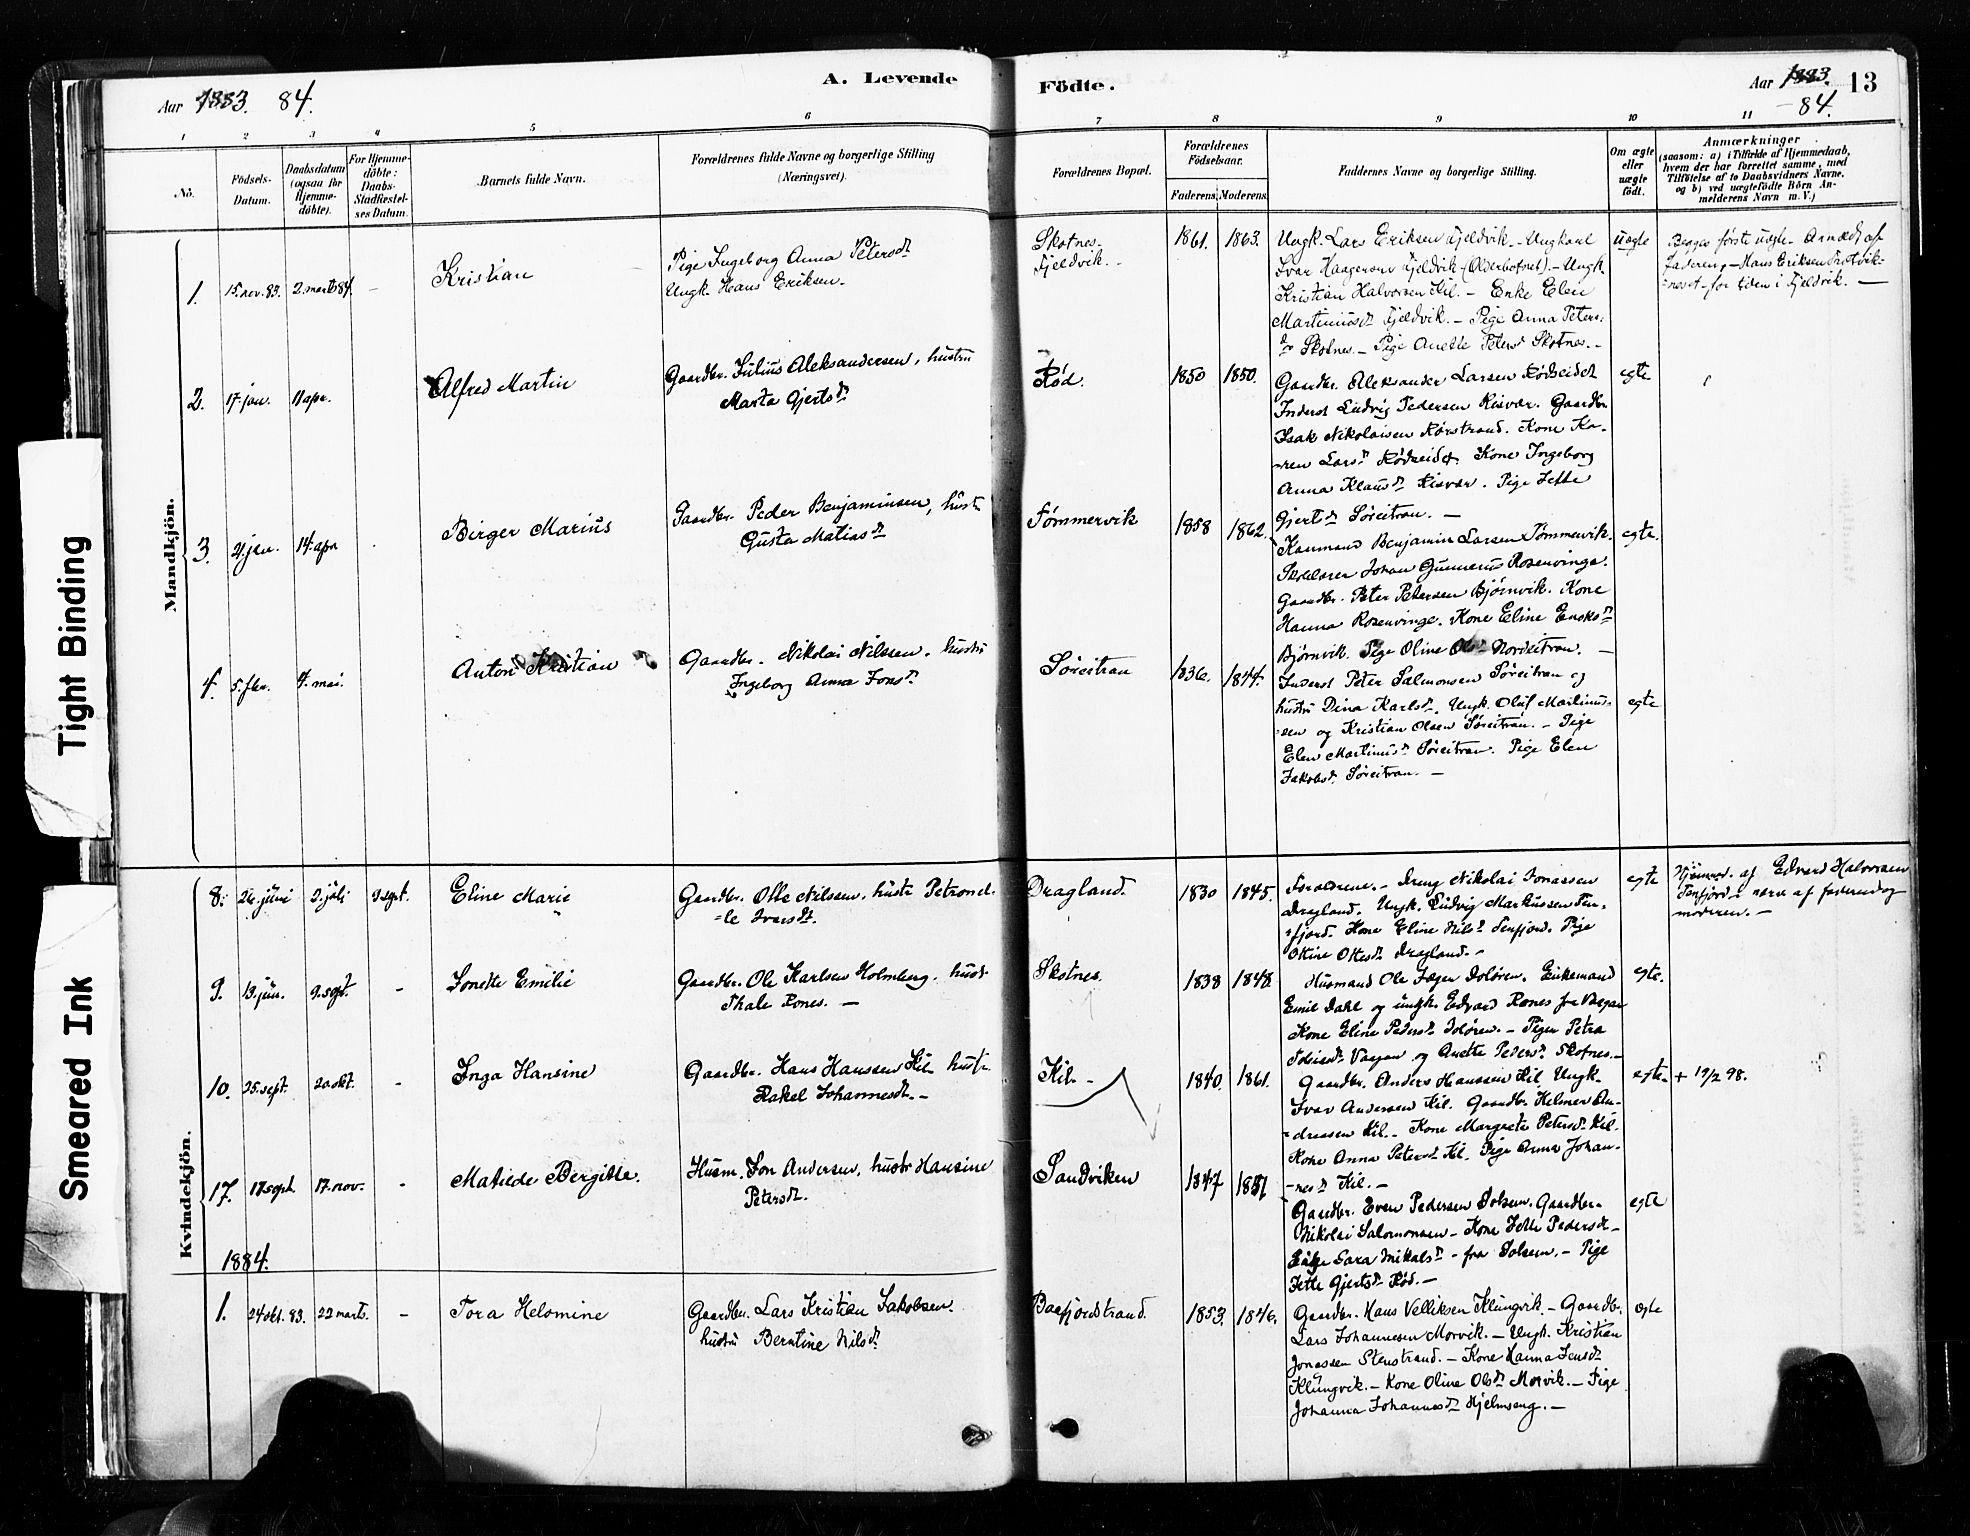 A. Levende
Födte.
Aar 1883. 84.
Aar 1883. 13
-84.
1 2 3 4 5 6 7 8 9 10 11
No.
Födsels-
Datum.
Daabsdatum
(ogsaa for
Hjemme-
döbte).
For Hjemme-
döbte:
Daabs-
Stadfæstel-
ses Datum.
Barnets fulde Navn.
Forældrenes fulde Navne og borgerlige Stilling
(Næringsvei).
Forældrenes Bopæl.
Forældrenes
Födselsaar.
Faderens. Moderens.
Faddernes Navne og borgerlige Stilling.
Om ægte
eller
uægte
födt.
Anmærkninger
(saasom: a) i Tilfælde af Hjemmedaab,
hvem der har forrettet samme, med
Tilföielse af to Daabsvidners Navne,
og b) ved uægtefödte Börn An-
melderens Navn m. V.)
Mandkjön.
1. 15. nov. 83. 2. marts 84. -
Kristian
Pige Ingeborg Anna Petersdr
Ungk. Hans Eriksen.
Skotnes.
Fjeldvik.
1861. 1863.
Ungk. Lars Eriksen Fjeldvik. - Ungkarl
Ivar Haagensen Fjeldvik (Olderhofnet). - Ungk.
Kristian Halvorsen Kil. - Enke Elen
Martinusdr Fjeldvik. - Pige Anna Peters-
dr Skotnes. - Pige Anette Petersdr Skotnes. -
uegte
Begges første uegte. Anmeldt af
faderen, - Hans Eriksen
- for tiden i Fjeldvik. -
2. 17. jan. 11 apr.
Alfred Martin
Gaardbr. Julius Aleksandersen, hustru
Marta Gjertsdr
Rød.
1850 1850.
Gaardbr. Aleksander Larsen Rødseidet
Inderst Ludvig Pedersen Risvær. Gaardbr.
Isak Nikolaisen Rørstrand. Kone Ka-
-ren Larsdr Rødseidet. Kone Ingeborg
Anna Klausdr Risvær. Pige Jette
Gjertsdr Søreitran. -
egte
3. 21. jan. 14. apr
Birger Marius
Gaardbr. Peder Benjaminsen, hustr
Gusta Matiasdr
Tømmervik
1858 1862.
Kaarmand Benjamin Larsen Tømmervik.
Skolelærer Johan Gunnerus Rosenvinge.
Gaardbr. Peter Petersen Bjørnvik. Kone
Hanna Rosenvinge. Kone Eline Enoksdr
Bjørnvik. Pige Oline Olsdr Nordeitran. -
egte.
4. 5. fbr. 4. mai.
Anton Kristian
Gaardbr. Nikolai Nilssen, hustru
Ingeborg Anna Jonsdr
Søreitran
1836. 1844.
Inderst Peter Salmonsen Søreitran og
hustru Dina Karlsdr. Ungk. Oluf Martinus-
-sen og Kristian Olsen Søreitran. - Pige
Elen Martinusdr Søreitran. Pige Elen
Jakobsdr. Søreitran. -
egte
Kvindekjön.
8. 26. juni 2. juli 9 sept.
Eline Marie
Gaardbr. Otte Nilssen, hustr Petronel-
-le Ivarsdr.
Dragland.
1830 1845.
Forældrene. - Dreng Nikolai Jonassen
Dragland. Ungk. Ludvig Markussen Ten-
-fjord. Kone Eline Nilsdr Tenfjord. Pige
Otine Ottesdr Dragland. -
egte
Hjemmed. af Edvard Halvorsen
Tenfjord i nærv. af faderen og
moderen. -
9. 13. jun. 9. sept. -
Jonette Emilie
Gaardbr. Ole Karlsen Holmberg. hustr
Thale Rones. -
Skotnes.
1838 1848.
Husmand Ole Jæger Doløren. Enkemand
Emil Dahl og ungk. Edvard Rones fra Vaagan
Kone Eline Pedersdr Doløren. - Piger Petra
Vaagan og Anette Pedersdr Skotnes. -
egte.
10. 25. sept. 20. okt. -
Inga Hansine
Gaardbr. Hans Hanssen Kil hustr.
Rakel Johannesdr. -
Kil. -
1840. 1861.
Gaardbr. Anders Hanssen Kil. Ungk.
Ivar Andersen Kil. Gaardbr. Helmer An-
-dreasen Kil. - Kone Margrete Petersdr Kil.
Kone Anna Petersdr Kil. Pige Anna Johan-
-nesdr Kil. -
egte. + 19/2 98.
17. 17. sept. 17. nov. -
Matilde Bergitte.
Husm. Jon Andersen, hustr Hansine
Petersdr.
Sandviken
1847 1857
Gaardbr. Even Pedersen Dolsem. Gaardbr.
Nikolai Salomonsen - Kone Jette Pedersdr -
Enke Sara Mikalsdr - fra Dolsem. - Pige
Jette Gjertsdr Rød. -
egte
1884.
1. 24 okt. 83. 22 marts. -
Tora Helomine
Gaardbr. Lars Kristian Jakobsen.
hustru Berntine Nilsdr
Baafjordstrand.
1853. 1846.
Gaardbr. Hans Velliksen Klungvik. - Gaardbr.
Lars Johannesen Morvik. - Ungk. Kristian
Jonassen Stenstrand. - Kone Hanna Jensdr
Klungvik. - Kone Oline Olsdr Morvik. - Pige
Johanna Johannesdr Hjelmseng. -
egte
Tight Binding
Smeared Ink